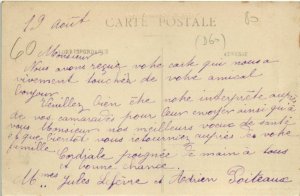 19 Août
CARTE POSTALE
80
60
(D60)
CORRESPONDANCE
ADRESSE
Monsieur
Nous avons reçue votre carte qui nous a
vivement touchés de votre amical
bonjour
Veuillez bien être notre interprète auprès
de vos camarades pour leur envoyer ainsi qu'à
vous Monsieur nos meilleurs voeux de santé
et que bientôt vous retourniez auprès de votre
famille
Cordiale poignée de main à tous
et bonne chance.
Mmes Jules Lefèvre et Adrien Poiteaux